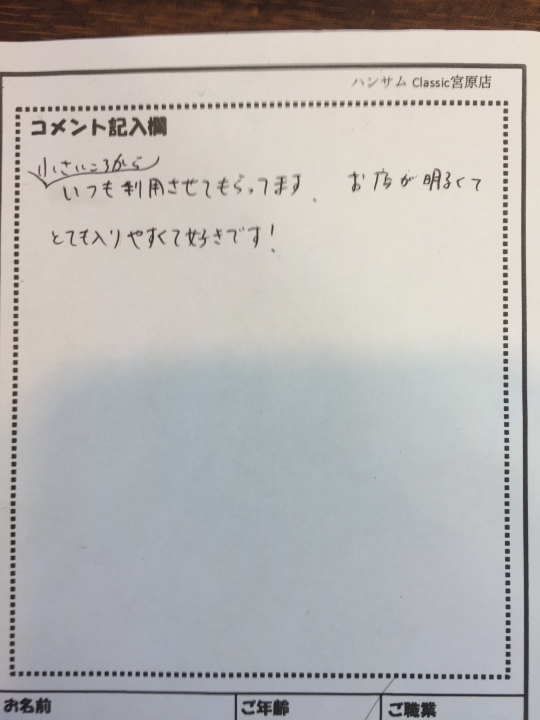 ハンサム Classic宮原店
コメント記入欄
小さいころから
いつも利用させてもらってます。 お店が明るくて
とても入りやすくて好きです!
お名前 ご年齢 ご職業